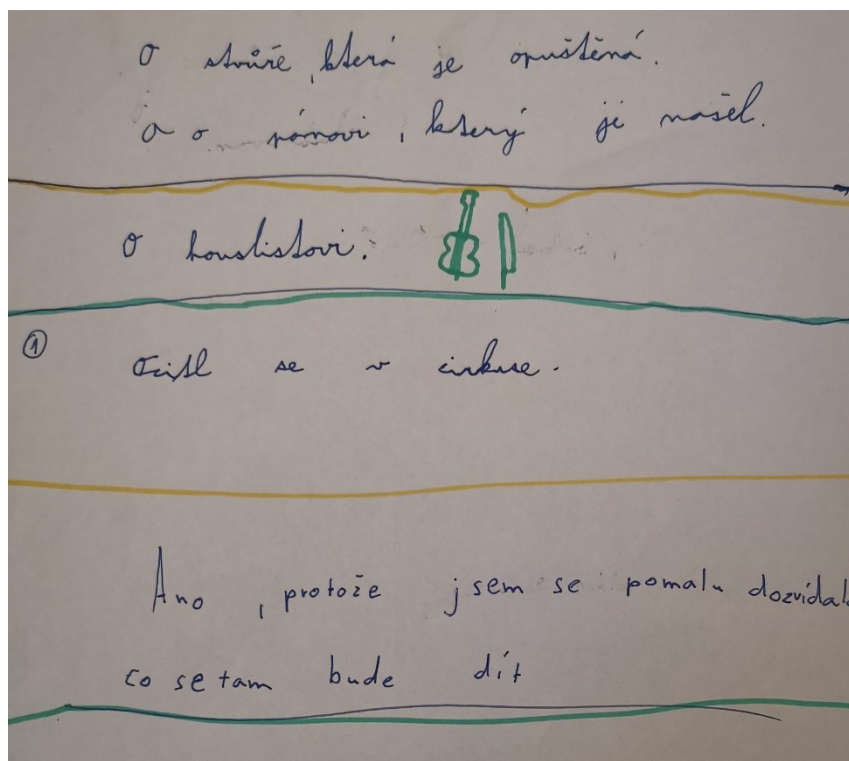 O stvůře, která je opuštěná.
a o pánovi, který ji našel.
O houslistovi.
1
Ocitl se v cirkuse.
Ano, protože jsem se pomalu dozvídal
co se tam bude dít